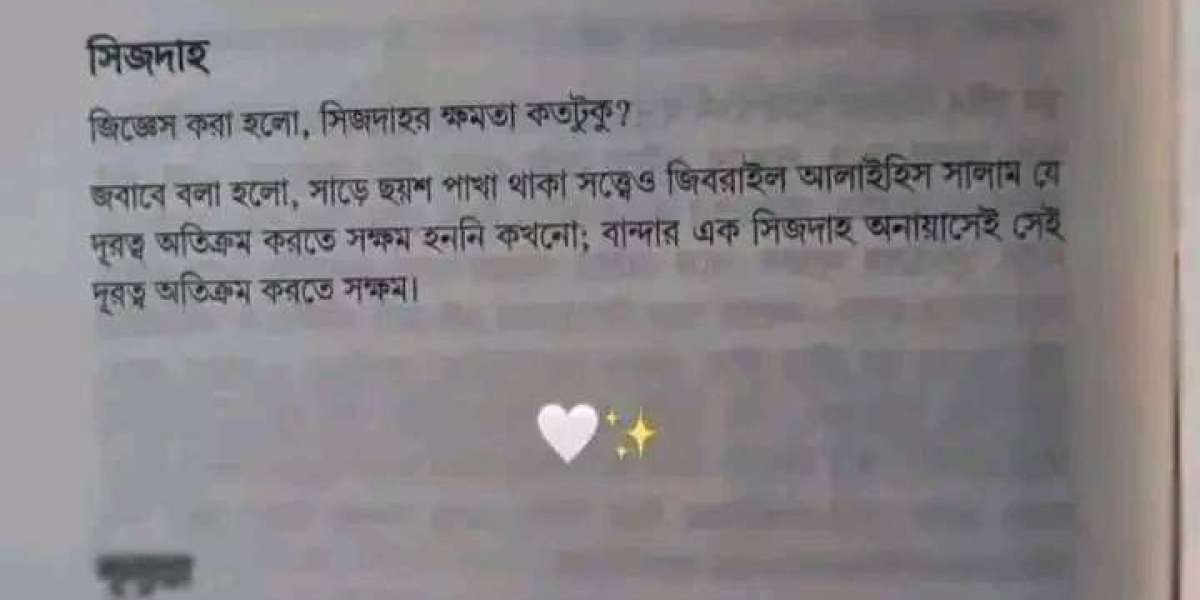 সিজদাহ
জিজ্ঞেস করা হলো, সিজদাহর ক্ষমতা কতটুকু?
জবাবে বলা হলো, সাড়ে ছয়শ পাখা থাকা সত্ত্বেও জিবরাইল আলাইহিস সালাম যে
দূরত্ব অতিক্রম করতে সক্ষম হননি কখনো; বান্দার এক সিজদাহ অনায়াসেই সেই
দূরত্ব অতিক্রম করতে সক্ষম।